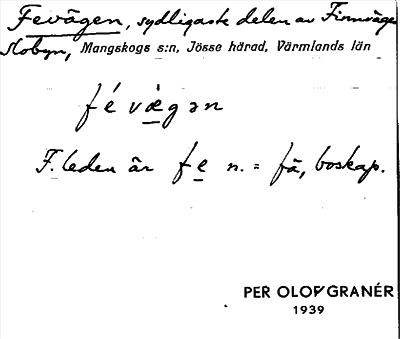 Fevägen, sydligaste delen av Finnvägen
slobyn, Mangskogs s:n, Jösse härad, Värmlands län
fé vægən
F.leden är fe n. = fä, boskap.
PER OLOF GRANÉR
1939